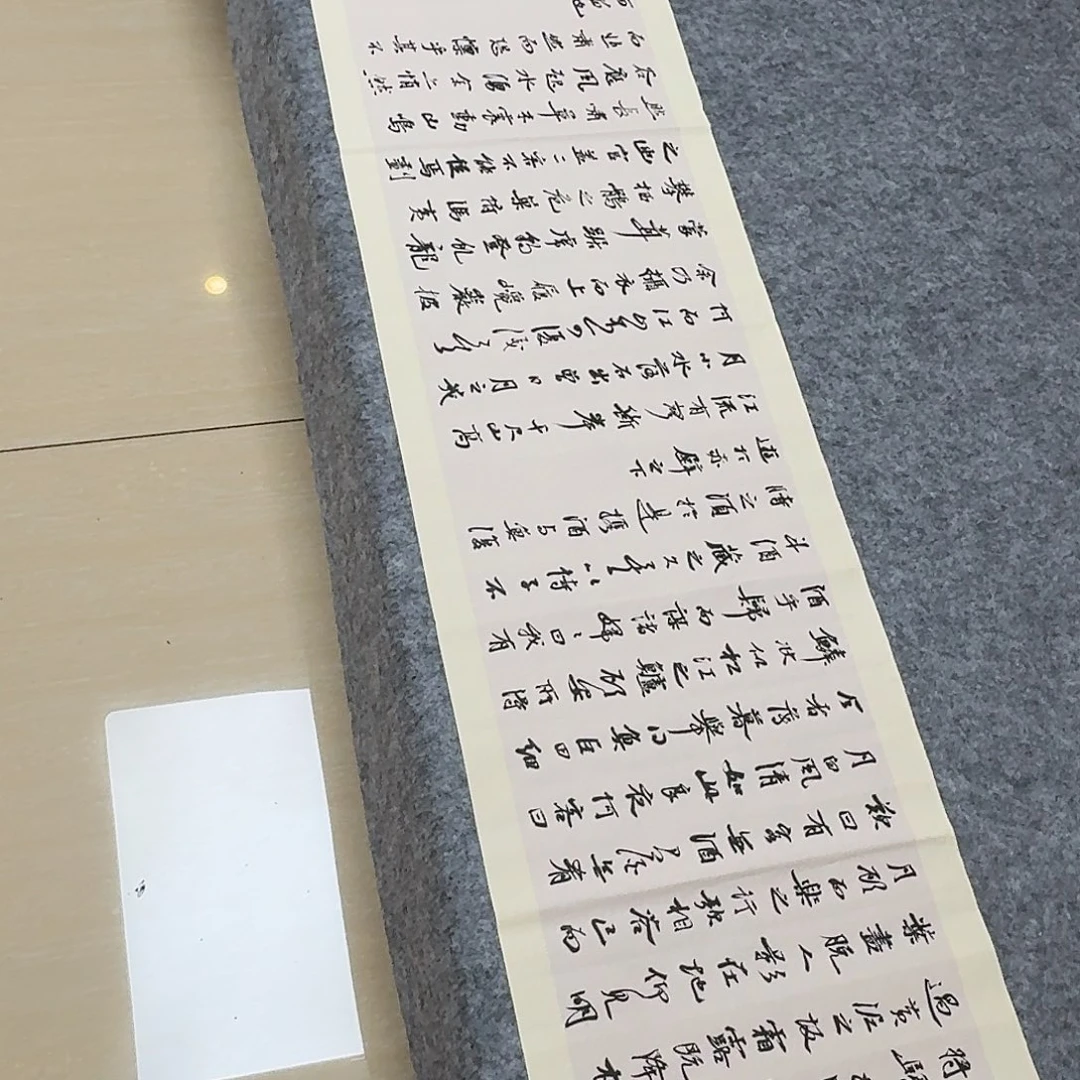 將歸
過黃泥之坂霜露既降木
葉盡脫人影在地仰見明
月顧而樂之行歌相答已而
歎曰有客無酒有酒無肴
月白風清如此良夜何客曰
今者薄暮舉网魚巨口細
鱗狀似松江之鱸顧安所得
酒乎歸而謀諸婦々曰我有
斗酒藏之久矣以待子不
時之須於是攜酒与魚復
遊於赤壁之下
江流有聲斷岸千尺山高
月小水落石出曾日月之幾
何而江山不可復識矣
余乃攝衣而上履巉巖披
蒙茸踞虎豹登虬龍
攀栖鶻之危巢俯馮夷
之幽宮蓋二客不能從焉劃
然長嘯草木震動山鳴
谷應風起水湧余亦悄然
而悲肅然而恐懍乎其不
留也